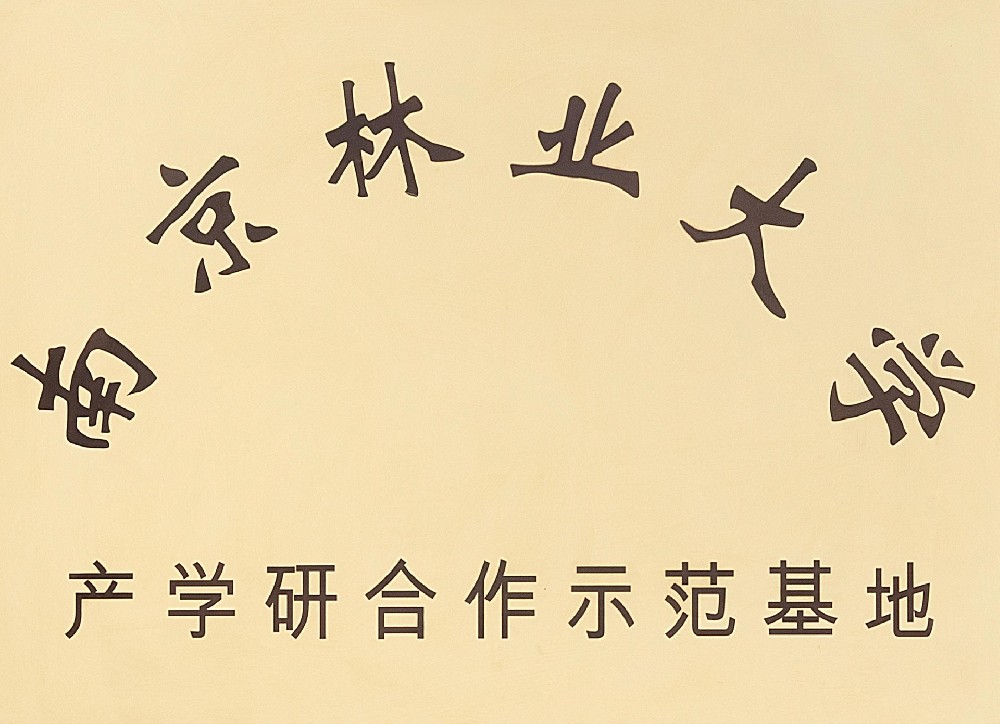 南京林业大学
产学研合作示范基地